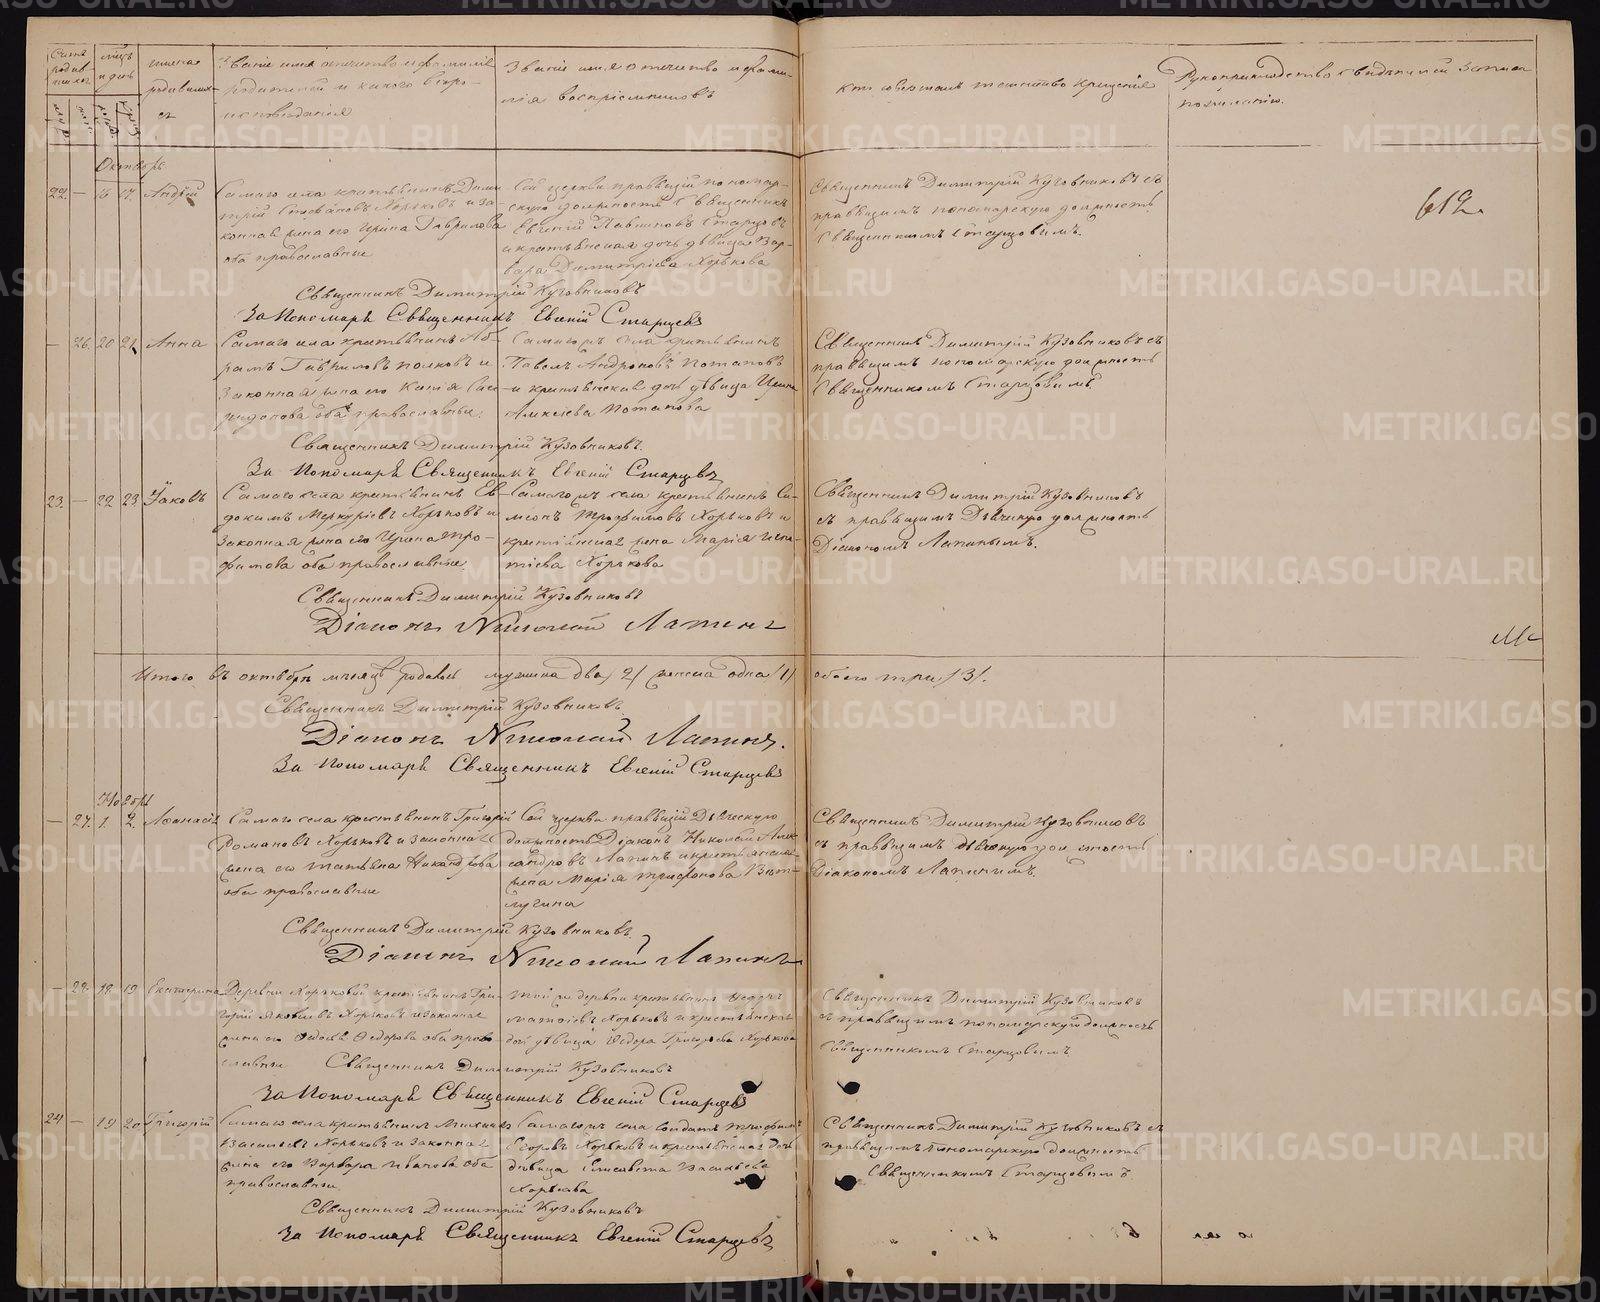 Званіе имя отечество и фамилія
родителей и какого вѣро-
исповѣданія
Званіе имя отечество и фами-
лія воспріемниковъ
Кто совершалъ таинство крещенія
Рукоприкладство свидѣтелей записи
по желанію.
Имена
родивших-
ся
Октябрь
22. — 16 17. Андрей
Самаго села крестьянинъ Дими-
трій Стефановъ Хорьковъ и за-
конная жена его Ирина Гаврилова
оба православные
Той церкви правящій пономар-
скую должность Священникъ
Евгеній Старцовъ
и крестьянская дочь дѣвица Вар-
вара Димитріева Хорькова
Священникъ Димитрій Кузовниковъ съ
правящимъ пономарскую должность
Священникомъ Старцовымъ.
612.
Священникъ Димитрій Кузовниковъ
За Пономаря Священникъ Евгеній Старцевъ
— 26. 20 21. Анна
Самаго села крестьянинъ Аб-
рамъ Гавриловъ и
Законная жена его
оба православные.
Самаго села крестьянинъ
Павелъ Андроновъ Потаповъ
и крестьянская дочь дѣвица Ирина
Алексіева Потапова
Священникъ Димитрій Кузовниковъ съ
правящимъ пономарскую должность
Священникомъ Старцовымъ
Священникъ Димитрій Кузовниковъ.
За Пономаря Священникъ Евгеній Старцевъ
23. — 22 23. Іаковъ
Самаго села крестьянинъ Ев-
докимъ Меркуріевъ Хорьковъ и
Законная жена его Ирина Тро-
фимова оба православные.
Самаго села крестьянинъ Си-
меонъ Трофимовъ Хорьковъ и
крестьянская жена Марія Игна-
тіева Хорькова
Священникъ Димитрій Кузовниковъ
съ правящимъ Дьяческую должность
Діакономъ Лапинымъ.
Священникъ Димитрій Кузовниковъ
Діаконъ Николай Лапинъ
Итого въ октябрѣ мѣсяцѣ родилось мужска два /2/ женска одна /1/ обоего три /3/.
Священникъ Димитрій Кузовниковъ.
Діаконъ Николай Лапинъ.
За Пономаря Священникъ Евгеній Старцевъ
Ноябрь
— 27. 1. 2. Аѳанасія
Самаго села крестьянинъ Григорій
Романовъ Хорьковъ и законная
жена его Татьяна Никандрова
оба православные
Той церкви правящій Дьяческую
должность Діаконъ Николай Алек-
сандровъ Лапинъ и крестьянская
жена Марія Трифонова Вет-
лугина
Священникъ Димитрій Кузовниковъ
съ правящимъ дьяческую должность
Діакономъ Лапинымъ.
Священникъ Димитрій Кузовниковъ.
Діаконъ Николай Лапинъ
— 28. 18. 19 Екатерина
Деревни Хорьковой крестьянинъ Гри-
горій Яковлевъ Хорьковъ и законная
жена его Ѳедосья Ѳедорова оба право-
славные
Той же деревни крестьянинъ Ѳедоръ
Хорьковъ и крестьянская
дочь дѣвица Григорьева Хорькова
Священникъ Димитрій Кузовниковъ
съ правящимъ пономарскую должность
Священникомъ Старцовымъ
Священникъ Димитрій Кузовниковъ
За Пономаря Священникъ Евгеній Старцевъ
24 — 19 20 Григорій
Самаго села крестьянинъ Михаилъ
Васильевъ Хорьковъ и законная
жена его Варвара Иванова оба
православные.
Самаго села солдатъ Трофимъ
Егоровъ Хорьковъ и крестьянская дочь
дѣвица Елисавета Васильева
Хорькова
Священникъ Димитрій Кузовниковъ съ
правящимъ Пономарскую должность
Священникомъ Старцовымъ.
Священникъ Димитрій Кузовниковъ
За Пономаря Священникъ Евгеній Старцевъ
METRIKI.GASO-URAL.RU